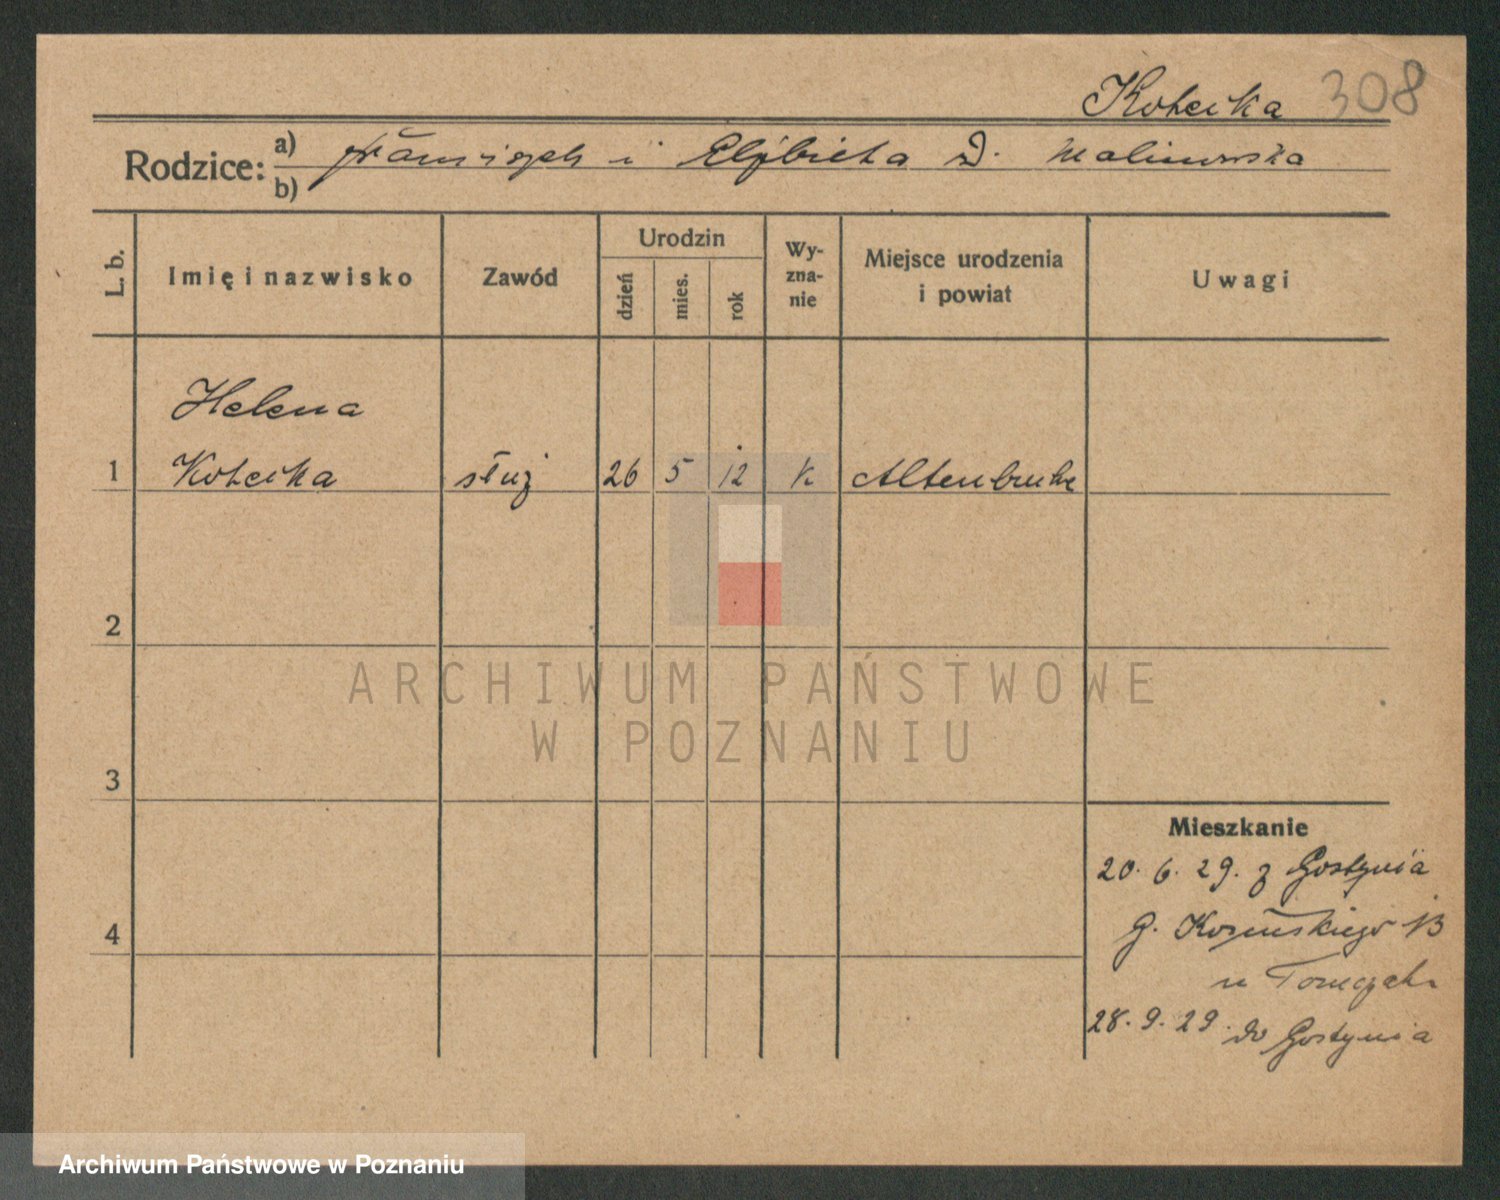 Kotecka 308
Rodzice: a) Franciszek i Elżbieta d. Malinowska
b)
L. b. Imię i nazwisko Zawód Urodzin dzień mies. rok Wy-zna-nie Miejsce urodzenia i powiat Uwagi
Helena
1 Kotecka służ 26 5 12 k
2
3
4
Mieszkanie
20. 6. 29. z Gostynia
G. Kosińskiego 13
u
28. 9. 29. do Gostynia
ARCHIWUM PAŃSTWOWE
W POZNANIU
Archiwum Państwowe w Poznaniu